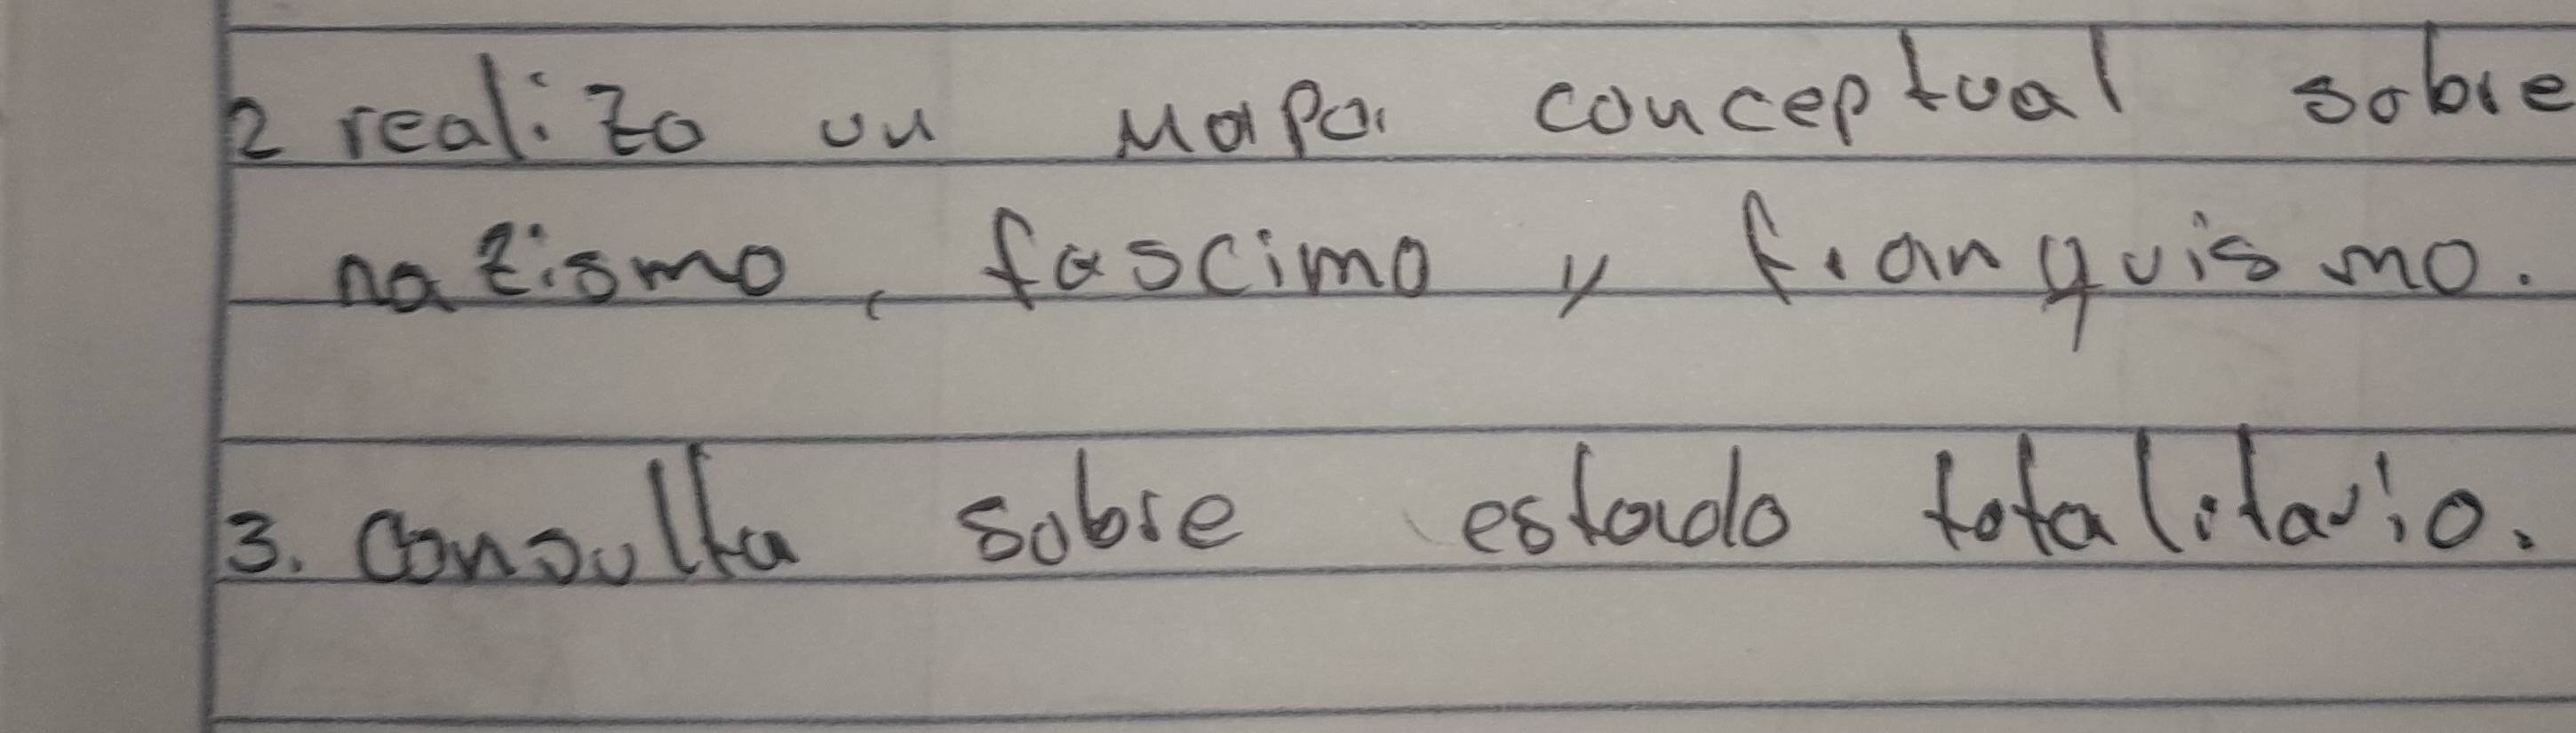 2 realizo un mapa conceptual sobre
nazismo, fascimo y franquismo.
3. Consulta sobre estado totalitario.